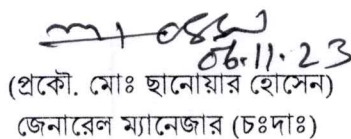 06.11.23
(প্রকৌ. মোঃ ছানোয়ার হোসেন)
জেনারেল ম্যানেজার (চঃদাঃ)